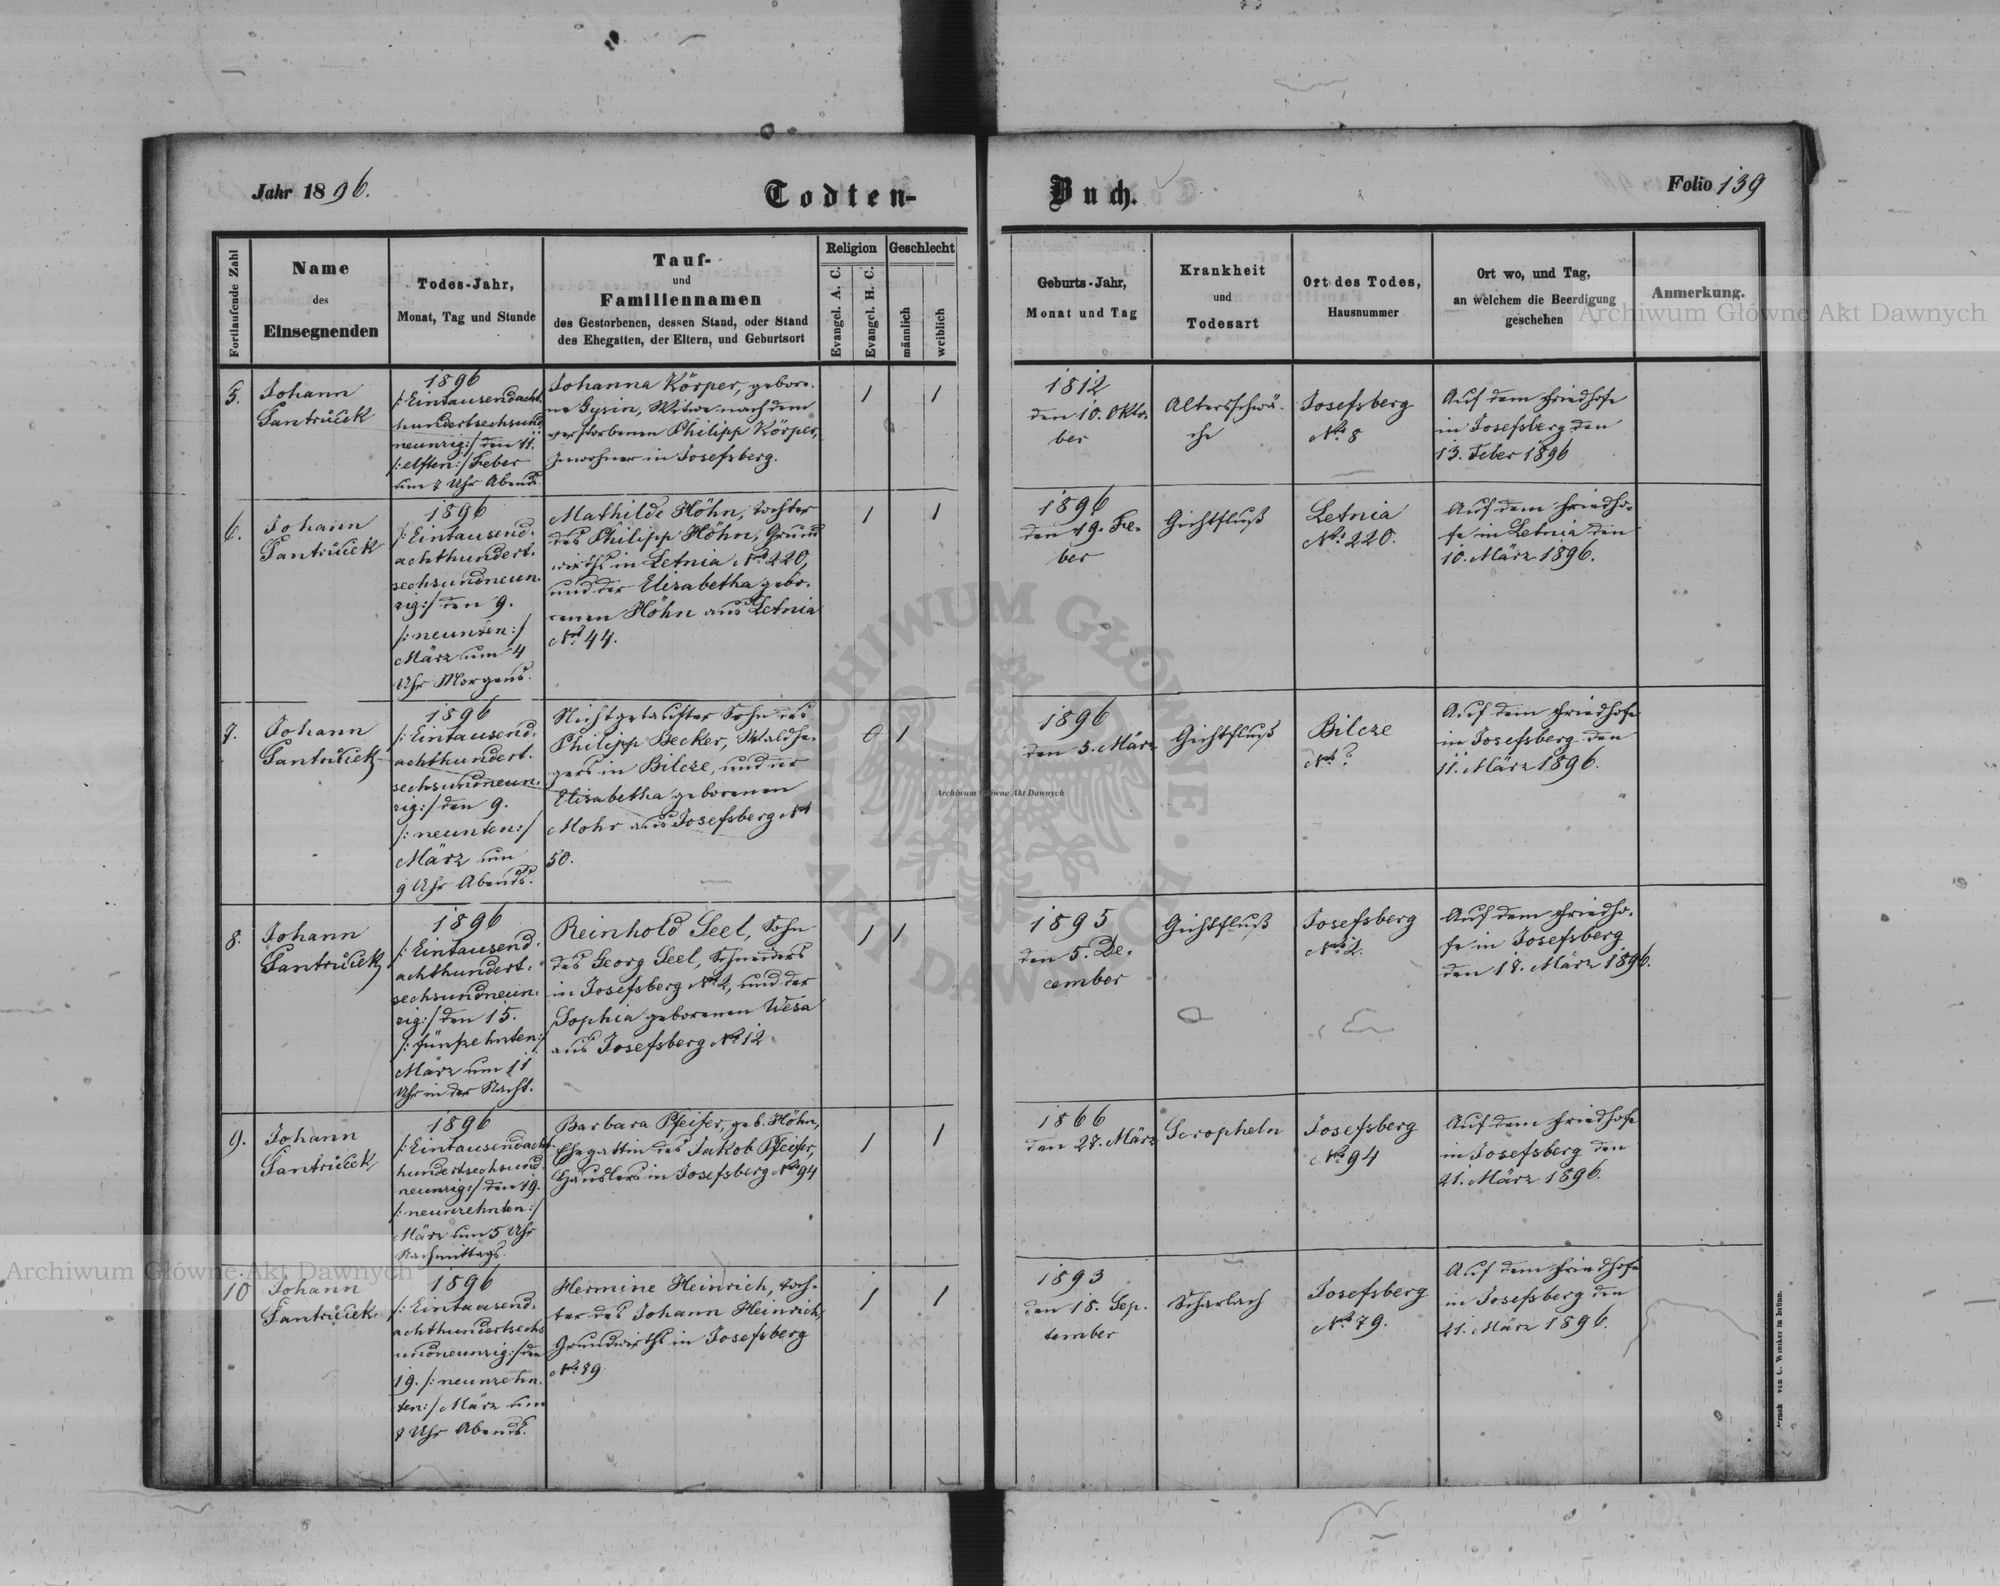 Jahr 1896.
Todten-
Buch.
Folio 139
Fortlaufende Zahl
Name
des
Einsegnenden
Todes-Jahr,
Monat, Tag und Stunde
Tauf-
und
Familiennamen
des Gestorbenen, dessen Stand, oder Stand
des Ehegatten, der Eltern, und Geburtsort
Religion
Evangel. A. C.
Evangel. H. C.
Geschlecht
männlich
weiblich
Geburts-Jahr,
Monat und Tag
Krankheit
und
Todesart
Ort des Todes,
Hausnummer
Ort wo, und Tag,
an welchem die Beerdigung
geschehen
Anmerkung.
5.
Johann
Jantřiček
1896
/: Eintausendacht-
hundertsechsund
neunzig :/ den 11.
/: elften :/ Feber
um 7 Uhr Abends.
Johanna Körper, gebore-
ne Gysin, Witwe nach dem
verstorbenen Philipp Körper,
Inwohner in Josefsberg.
1
1
1812
den 10. Okto-
ber
Altersschwä-
che
Josefsberg
No 8
Auf dem Friedhofe
in Josefsberg den
13. Feber 1896
6.
Johann
Jantřiček
1896
/: Eintausend-
achthundert-
sechsundneun-
zig :/ den 9.
/: neunten :/
März um 4
Uhr Morgens.
Mathilde Höhn, Tochter
des Philipp Höhn, Grund
wirths in Letnia No 220,
und der Elisabetha gebo-
renen Höhn aus Letnia
No 44.
1
1
1896
den 19. Fe-
ber
Gichtfluß
Letnia
No 220.
Auf dem Friedho-
fe in Letnia den
10. März 1896.
7.
Johann
Jantřiček
1896
/: Eintausend-
achthundert-
sechsundneun-
zig :/ den 9.
/: neunten :/
März um
9 Uhr Abends.
Nichtgetaufter Sohn des
Philipp Becker, Waldhe-
gers in Bilcze, und der
Elisabetha geborenen
Mohr aus Josefsberg No
50.
0
1
1896
den 5. März
Gichtfluß
Bilcze
No ?
Auf dem Friedhofe
in Josefsberg den
11. März 1896.
8.
Johann
Jantřiček
1896
/: Eintausend-
achthundert-
sechsundneun-
zig :/ den 15.
/: fünfzehnten :/
März um 11
Uhr in der Nacht.
Reinhold Seel, Sohn
des Georg Seel, Schneiders
in Josefsberg No 2, und der
Sophia geborenen Wesa
aus Josefsberg No 12
1
1
1895
den 5. De-
cember
Gichtfluß
Josefsberg
No 2.
Auf dem Friedho-
fe in Josefsberg
den 17. März 1896.
9.
Johann
Jantřiček
1896
/: Eintausendacht-
hundertsechsund
neunzig :/ den 19.
/: neunzehnten :/
März um 5 Uhr
Nachmittags.
Barbara Pfeifer, geb. Höhn,
Ehegattin des Jakob Pfeifer,
Häuslers in Josefsberg No 94
1
1
1866
den 27. März
Scropheln
Josefsberg
No 94
Auf dem Friedhofe
in Josefsberg den
21. März 1896.
10
Johann
Jantřiček
1896
/: Eintausend-
achthundertsechs
undneunzig :/ den
19. /: neunzehn-
ten :/ März um
7 Uhr Abends.
Hermine Heinrich, Toch-
ter des Johann Heinrich,
Grundwirths in Josefsberg
No 79
1
1
1893
den 18. Sep-
tember
Scharlach
Josefsberg
No 79.
Auf dem Friedhofe
in Josefsberg den
21. März 1896.
Druck von C. Winiker in Brünn.
Archiwum Główne Akt Dawnych
Archiwum Główne Akt Dawnych
Archiwum Główne Akt Dawnych
ARCHIWUM GŁÓWNE AKT DAWNYCH